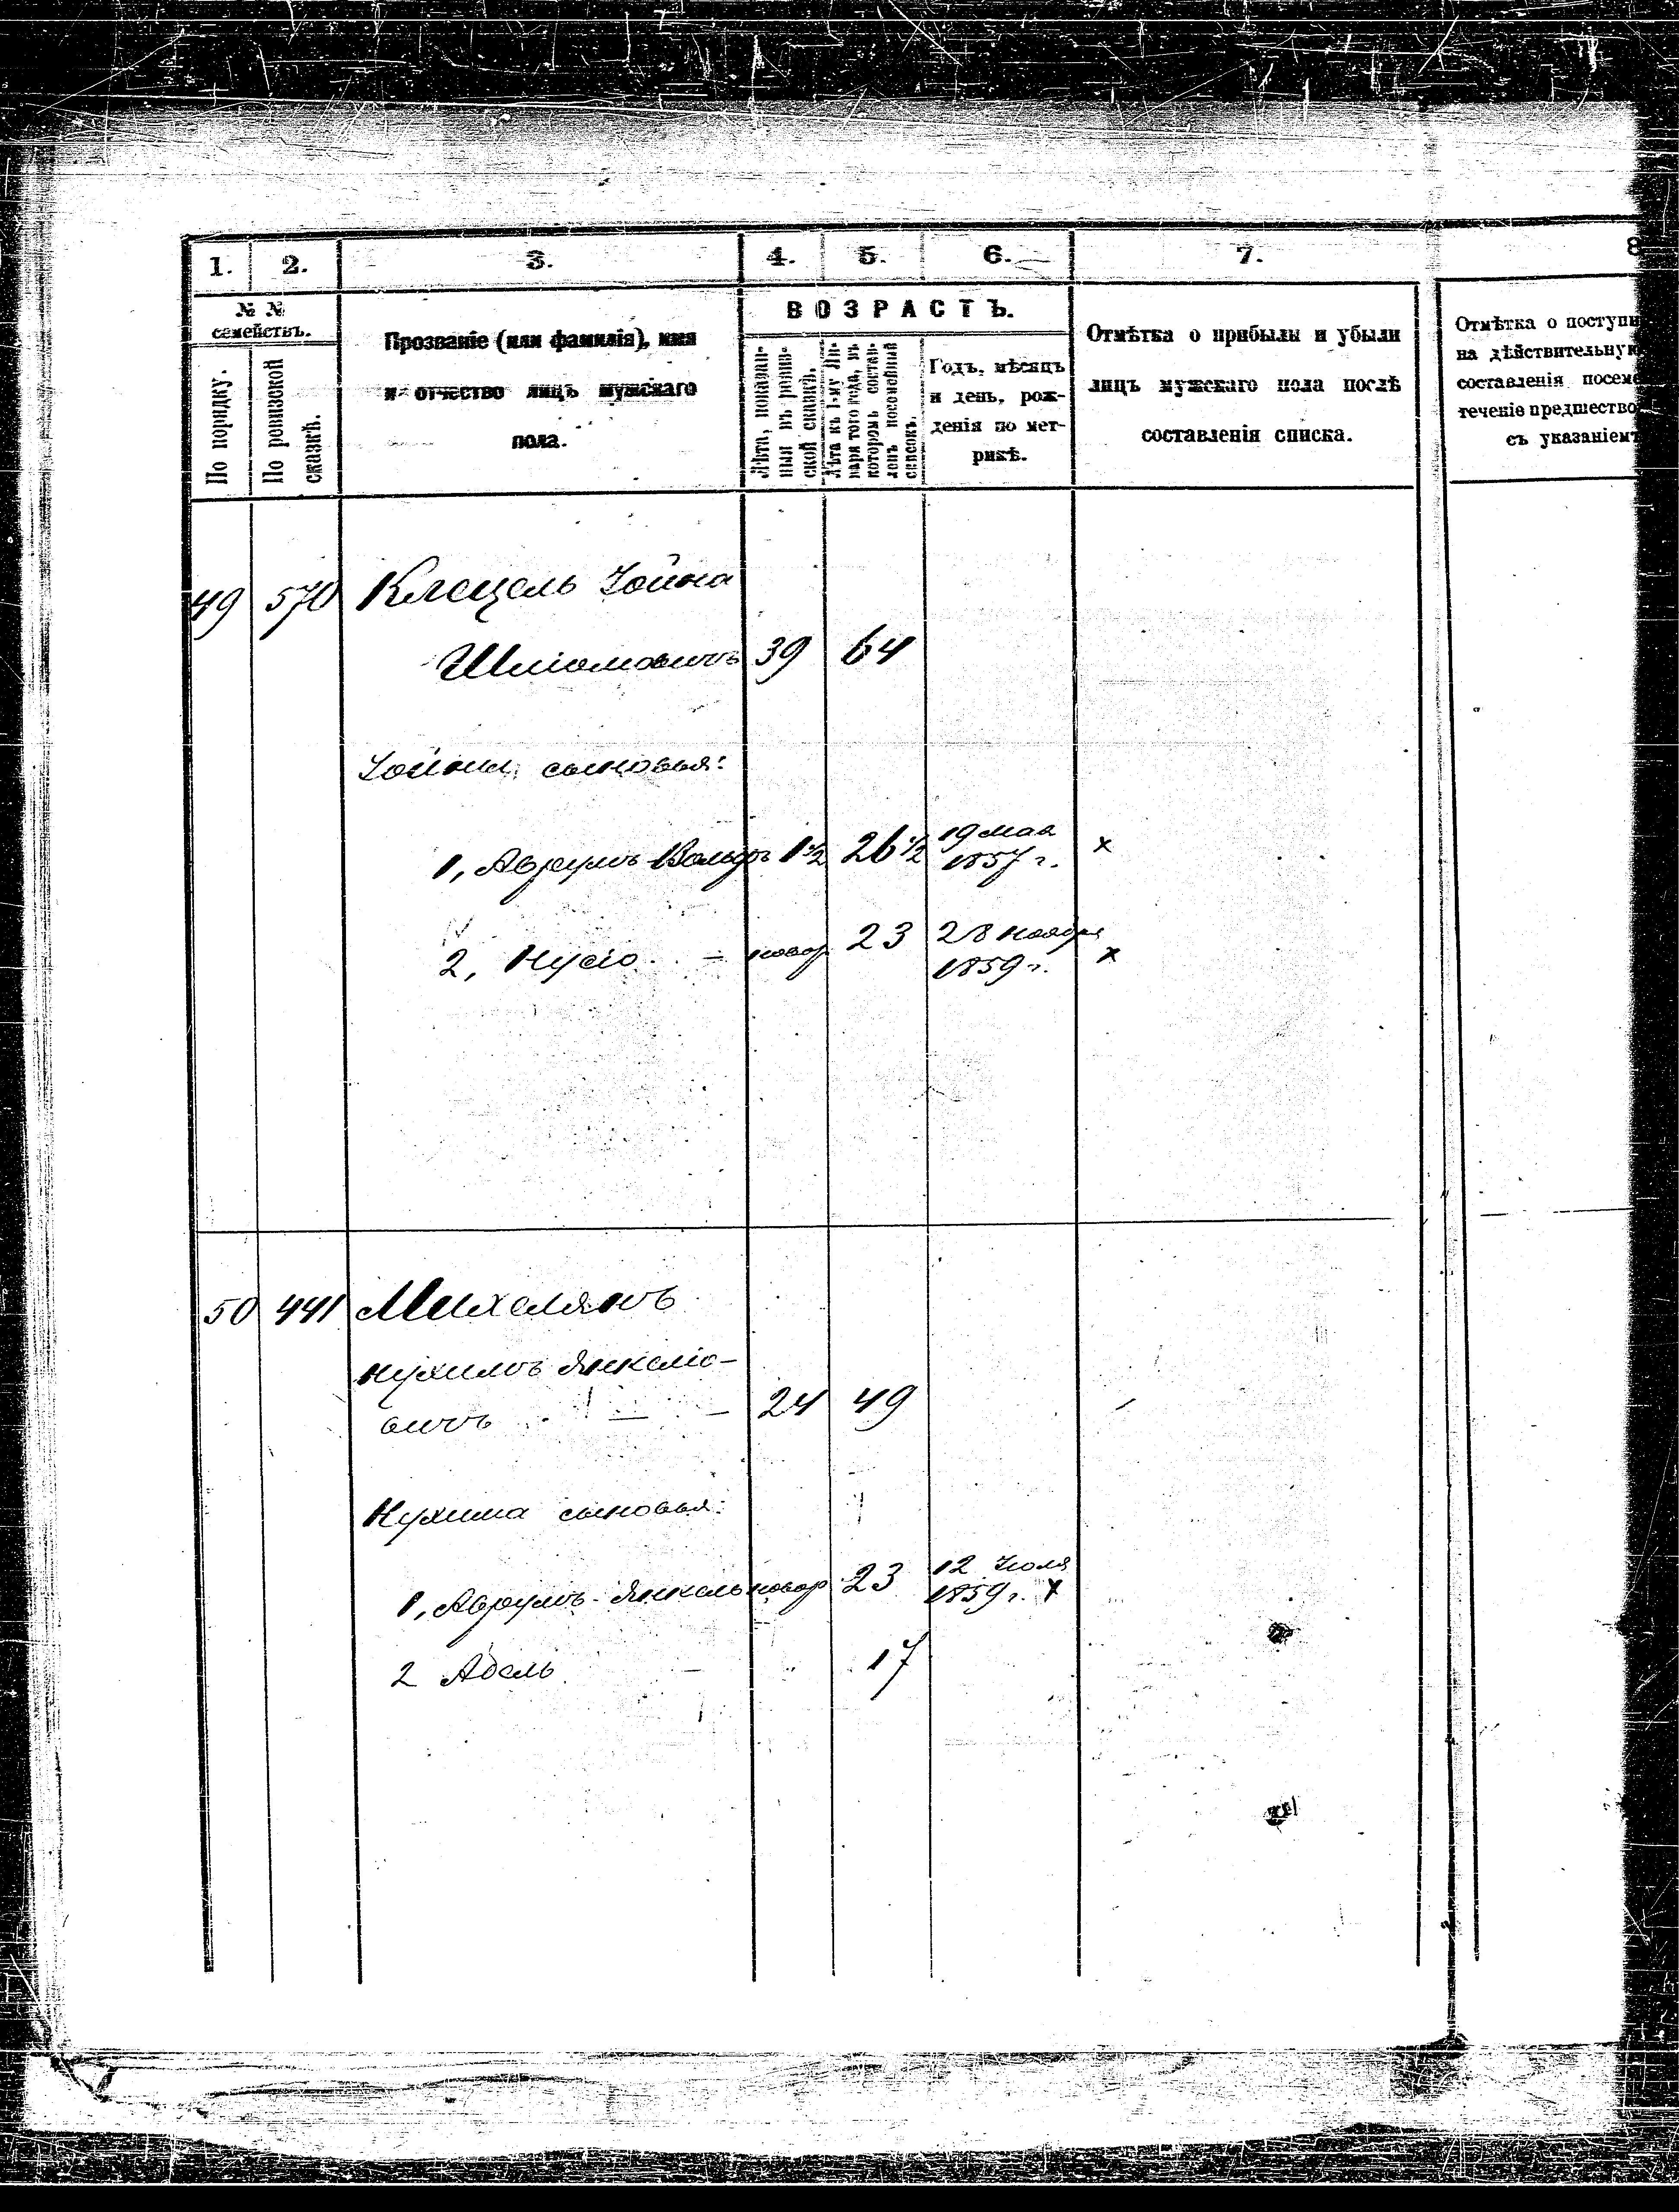 1. 2. 3. 4. 5. 6. 7. 8
№ №
семействъ.
По порядку.
По ревизской
сказкѣ.
Прозваніе (или фамилія), имя
и отчество лицъ мужскаго
пола.
ВОЗРАСТЪ.
Лѣта, показан-
ныя въ ревиз-
ской сказкѣ.
Лѣта къ 1-му Ян-
варя того года, въ
которомъ состав-
ленъ посемейный
списокъ.
Годъ, мѣсяцъ
и день, рож-
денія по мет-
рикѣ.
Отмѣтка о прибыли и убыли
лицъ мужскаго пола послѣ
составленія списка.
Отмѣтка о поступи
на дѣйствительную
составленія посеме
теченіе предшество
съ указаніемъ
49 570 Клецель Іойна
Шліомовичъ 39 64
Іойны сыновья:
1, Аврумъ-Вольфъ 1½ 26½ 19 мая
1857 г. х
2, Нусіо - новор 23 28 ноября
1859 г. х
50 441 Михелянъ
Нухимъ Янкеліо-
вичъ — — 24 49
Нухима сыновья:
1, Аврумъ-Янкель новор 23 12 Іюля
1859 г. х
2 Абель 17